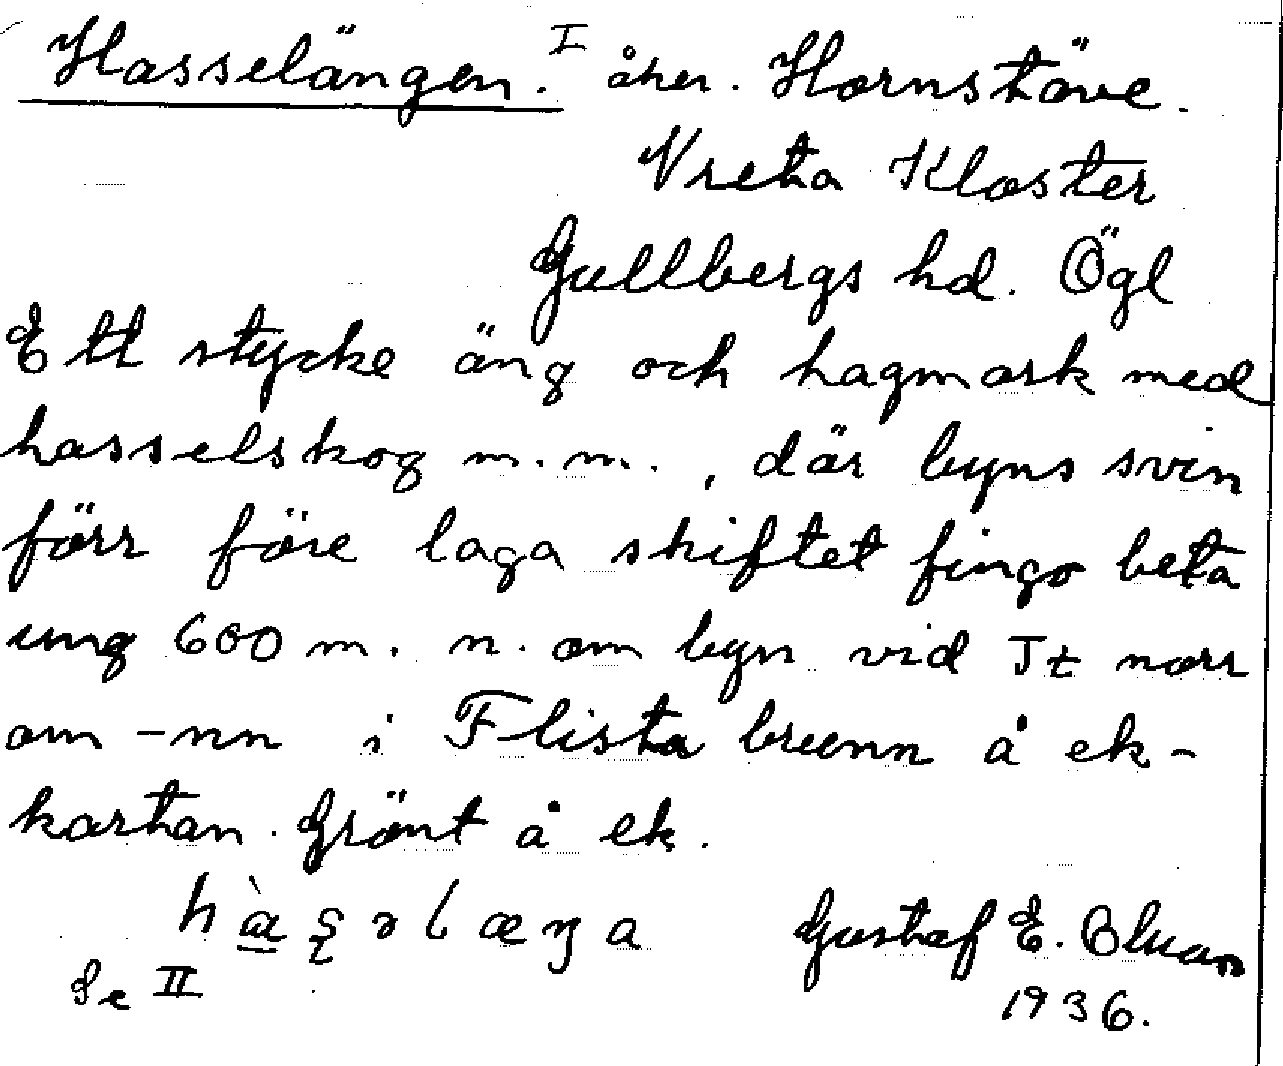 Hasselängen. I åker. Hornstöve.
Vreta Kloster
Gullbergs hd. Ögl
Ett stycke äng och hagmark med
hasselskog m.m., där byns svin
förr före laga skiftet fingo beta
ung 600 m. n. om byn vid Tt norr
om -nn i Flista brunn å ek-
kartan. Grönt å ek.
Gustaf E. 
Se II 1936.